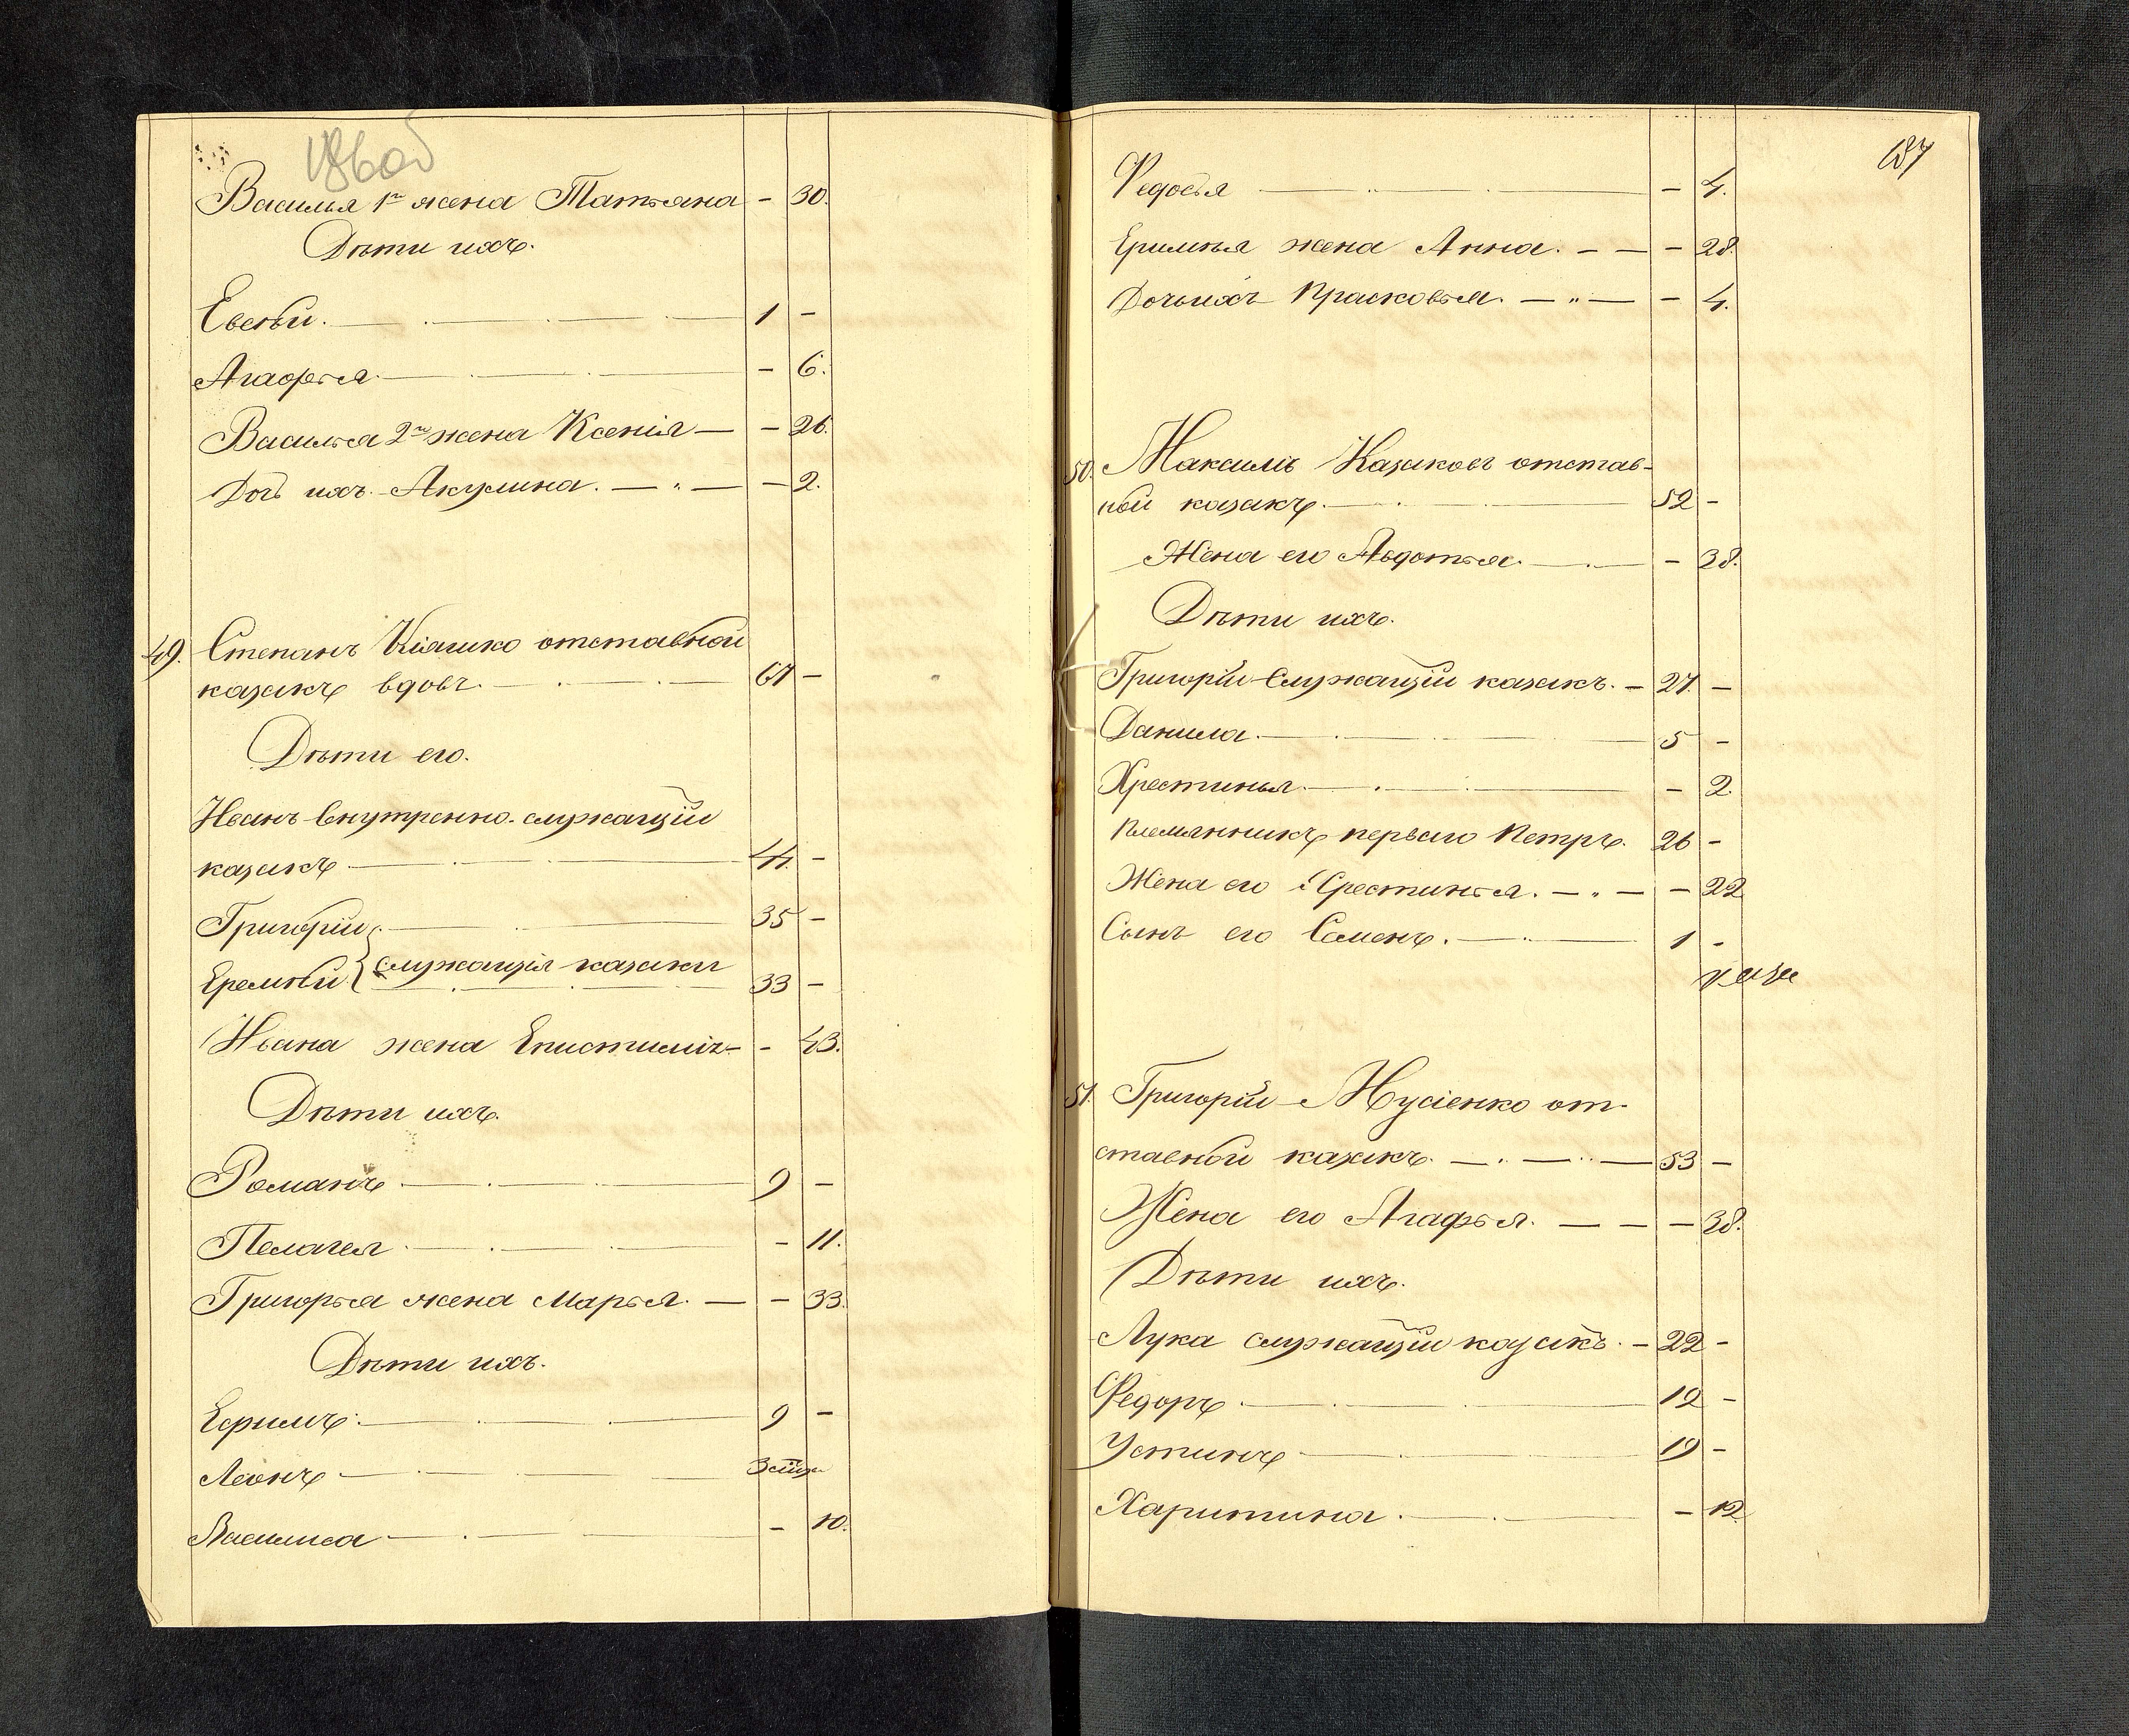 186об
Василья 1я жена Татьяна - 30.
Дѣти ихъ.
Евсѣй. 1 -
Агафья - 6.
Василья 2я жена Ксенія - 26.
Дочь ихъ Акулина. - 2.
49. Степанъ Кіяшко отставной
казакъ вдовъ. 67 -
Дѣти его.
Иванъ внутренно-служащій
казакъ 44. -
Григорій 35 -
служащія казаки
Еремѣй 33 -
Ивана жена Епистимія - 43.
Дѣти ихъ.
Романъ 9 -
Пелагея - 11.
Григорья жена Марья. - 33.
Дѣти ихъ.
Ефимъ. 9 -
Леонъ
Василиса - 10.
187
Федосья - 4.
Еримѣя жена Анна. - 28.
Дочь ихъ Прасковья. - 4.
50. Максимъ Казаковъ отстав-
ной казакъ. 52 -
Жена его Авдотья. - 38.
Дѣти ихъ.
Григорій служащій казакъ. - 27. -
Данила. 5 -
Хрестинья. - 2.
Племянникъ перваго Петръ. 26 -
Жена его Хрестинья. - 22
Сынъ его Семенъ. 1 -
51. Григорій Мусіенко от-
ставной казакъ. 53 -
Жена его Агафья. - 38.
Дѣти ихъ.
Лука служащій казакъ. - 22 -
Федоръ. 19 -
Устинъ 19 -
Харитина. - 12